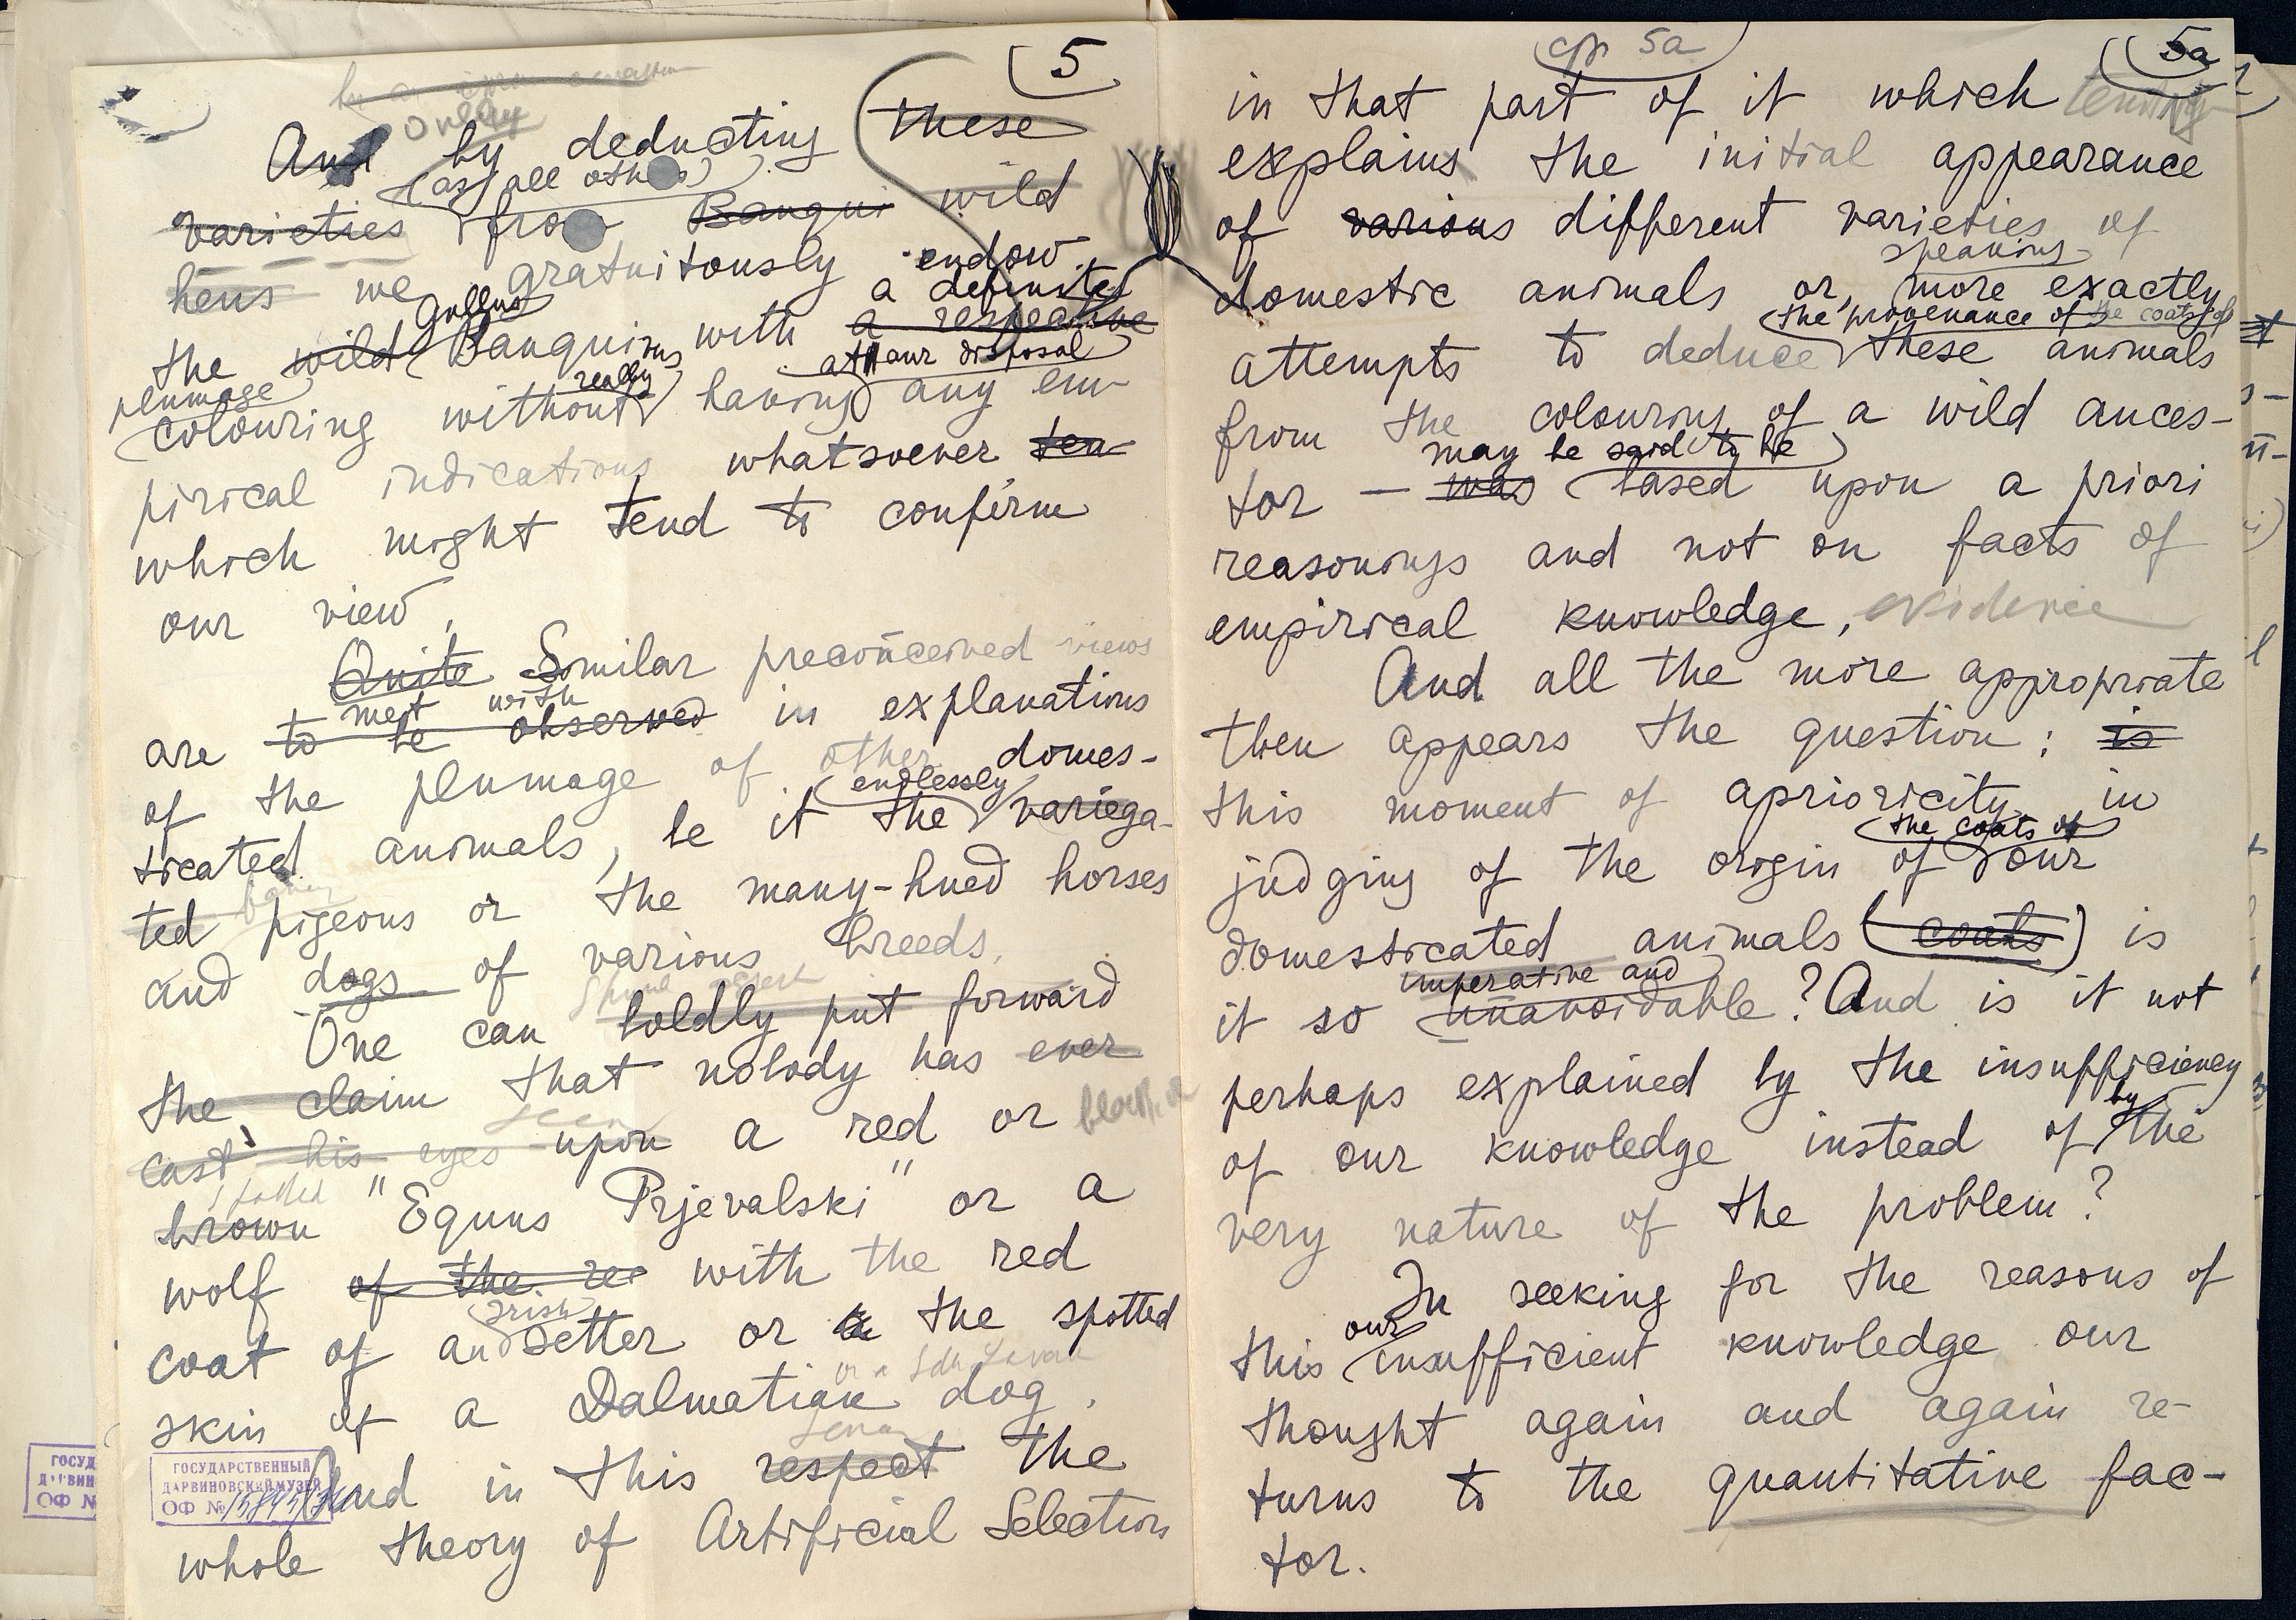 5
Only
And by deducting these
(as all others)
varieties from Banqui wild
hens we gratuitously endow
Gallus a definite
the wild Banquinus with a respective
plumage really at our disposal
colouring without having any em-
pirical indications whatsoever ten-
which might tend to confirm
our view,
Quite Similar preconceived views
meet with
are to be observed in explanations
of the plumage of other domes-
endlessly
ticated animals, be it the variega-
fancy
ted pigeons or the many-hued horses
and dogs of various breeds.
One can boldly put forward
the claim that nobody has ever
seen
cast his eyes upon a red or black or
spotted
brown "Equus Prjevalski" or a
wolf of the re with the red
Irish
coat of an setter or a the spotted
skin of a Dalmatian dog.
And in this respect the
whole theory of Artificial Selection
ГОСУДАРСТВЕННЫЙ
ДАРВИНОВСКИЙ МУЗЕЙ
ОФ №
ГОСУД
ДАРВИН
ОФ №
стр 5a
5a
in that part of it which
explains the initial appearance
of various different varieties of
speaking
domestic animals or, more exactly
the provenance of the coats of
attempts to deduce these animals
from the colouring of a wild ances-
may be said to be
tor — was based upon a priori
reasonings and not on facts of
empirical knowledge, evidence
And all the more appropriate
then appears the question: is
this moment of aprioricity in
the coats of
judging of the origin of our
domesticated animals (coats) is
imperative and
it so unavoidable? And is it not
perhaps explained by the insufficiency
by
of our knowledge instead of the
very nature of the problem?
In seeking for the reasons of
our
this insufficient knowledge our
thought again and again re-
turns to the quantitative fac-
tor.